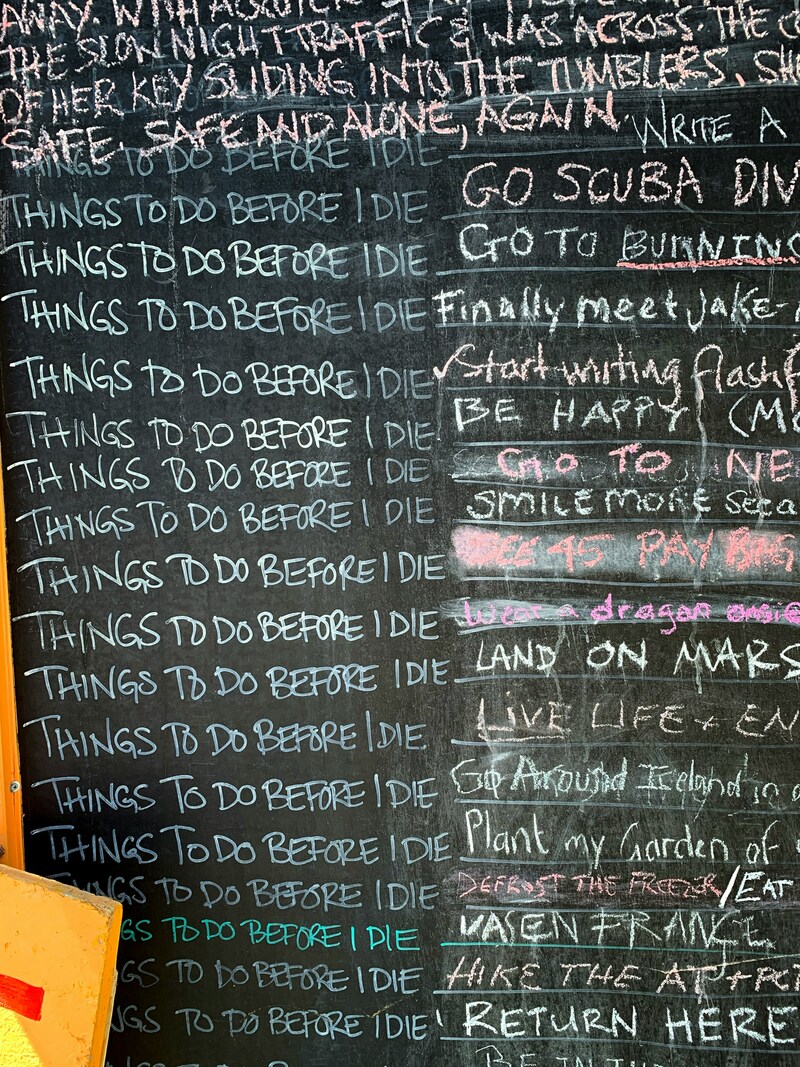 AWAY WITH
THE SLOW NIGHT TRAFFIC & WAS ACROSS. THE
OF HER KEY SLIDING INTO THE TUMBLERS, SH
SAFE. SAFE AND ALONE, AGAIN.
THINGS TO DO BEFORE I DIE WRITE A
THINGS TO DO BEFORE I DIE GO SCUBA DIV
THINGS TO DO BEFORE I DIE GO TO BURNING
THINGS TO DO BEFORE I DIE Finally meet Jake-
THINGS TO DO BEFORE I DIE ✓Start writing flash
THINGS TO DO BEFORE I DIE BE HAPPY (MO
THINGS TO DO BEFORE I DIE GO TO NE
THINGS TO DO BEFORE I DIE SMILE MORE
THINGS TO DO BEFORE I DIE SEE 45 PAY
THINGS TO DO BEFORE I DIE Wear a dragon onsie
THINGS TO DO BEFORE I DIE LAND ON MARS
THINGS TO DO BEFORE I DIE LIVE LIFE + EN
THINGS TO DO BEFORE I DIE Go Around Iceland in a
THINGS TO DO BEFORE I DIE Plant my Garden of
THINGS TO DO BEFORE I DIE DEFROST THE FREEZER/EAT
GS TO DO BEFORE I DIE
GS TO DO BEFORE I DIE HIKE THE AT +
NGS TO DO BEFORE I DIE RETURN HERE
THINGS TO DO BEFORE I DIE BE IN